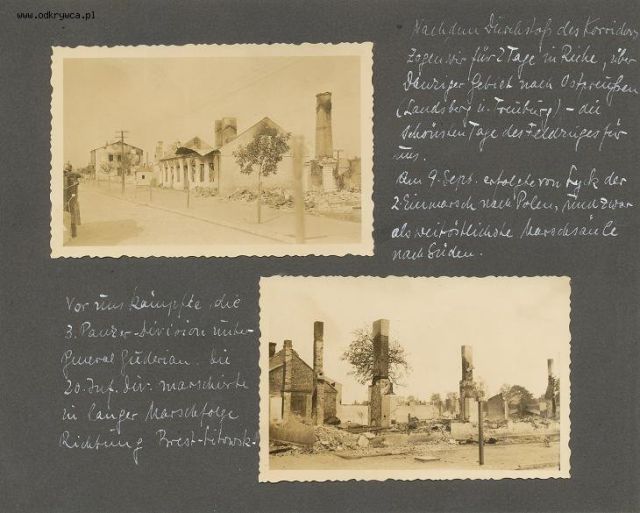 www.odkrywca.pl
Nach dem Durchstoß des Korridors
zogen wir für 2 Tage in Ruhe, über
Danziger Gebiet nach Ostpreußen
(Landsberg u. Freuburg) – die
schönsten Tage des Feldzuges für
uns.
Am 9. Sept. erfolgte von Lyck der
2. Einmarsch nach Polen, und zwar
als weitöstlichste Marschsäule
nach Süden.
Vor uns kämpfte die
3. Panzer-Division unter
General Guderian. Die
20. Inf. Div. marschierte
in langer Marschfolge
Richtung Brest-Litowsk.